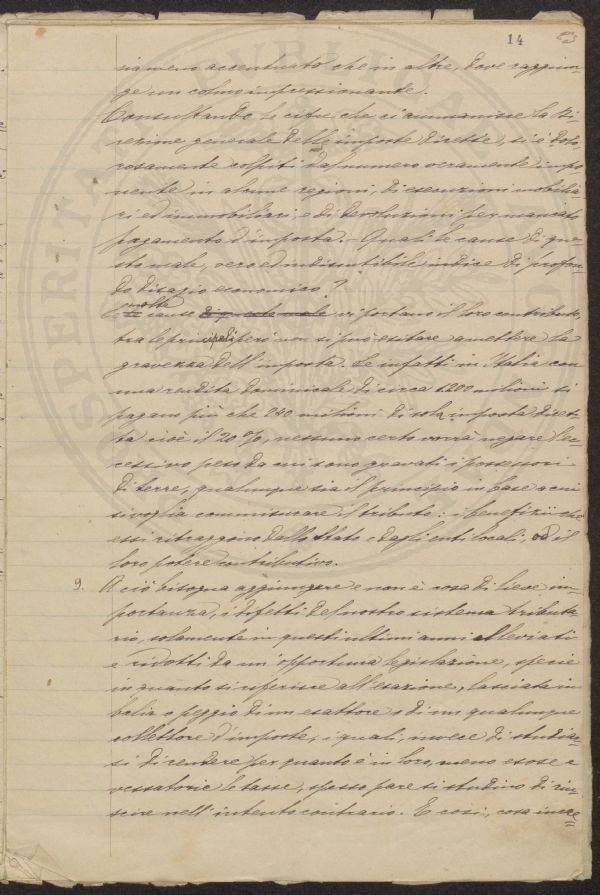 14
sia meno accentuato che in altre, dove raggiun-
ge un colmo impressionante.
Consultando le cifre che ci ammanisse la Di-
rezione generale delle imposte dirette, si è dolo-
rosamente colpiti dal numero veramente impo-
nente in alcune regioni, di esecuzioni mobilia-
ri ed immobiliari, e di devoluzioni per mancato
pagamento d'imposta. Quali le cause di que-
sto male, vero ed indiscutibile indice di profon-
do disagio economico?
molte cause di questo male vi portano il loro contributo,
tra le principali però non si può esitare a mettere la
gravezza dell'imposta. Se infatti in Italia con
una rendita dominicale di circa 1200 milioni si
pagano più che 240 milioni di sola imposta diret-
ta cioè il 20%, nessuno certo vorrà negare l'ec-
cessivo peso da cui sono gravati i possessori
di terre, qualunque sia il principio in base a cui
si voglia commisurare il tributo: i benefizi che
essi ritraggono dallo Stato e dagli enti locali, od il
loro potere contributivo.
9. A ciò bisogna aggiungere e non è cosa di lieve im-
portanza, i difetti del nostro sistema tributa-
rio, solamente in questi ultimi anni alleviati
e ridotti da un'opportuna legislazione, specie
in quanto si riferisce all'esazione, lasciata in
balia o peggio di un esattore o di un qualunque
collettore d'imposte, i quali, invece di studiar-
si di rendere per quanto è in loro, meno esose e
vessatorie le tasse, spesso pare si studino di riu-
scire nell'intento contrario. E così, cosa incre-